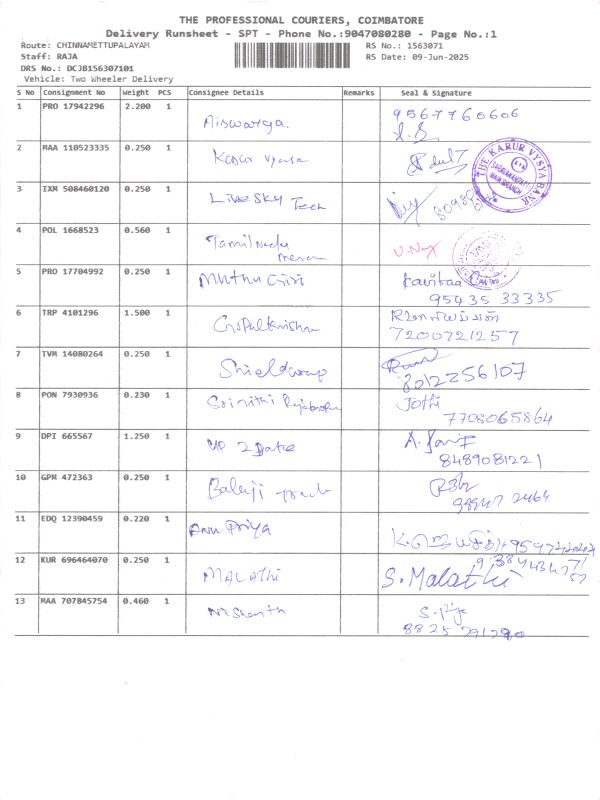 THE PROFESSIONAL COURIERS, COIMBATORE
Delivery Runsheet - SPT - Phone No.:9047080280 - Page No.:1
Route: CHINNAMETTUPALAYAM RS No.: 1563071
Staff: RAJA RS Date: 09-Jun-2025
DRS No.: DCJB156307101
Vehicle: Two Wheeler Delivery
S No Consignment No Weight PCS Consignee Details Remarks Seal & Signature
1 PRO 17942296 2.200 1 Aiswarya. 9567760606
2 MAA 110523335 0.250 1 Karur Vysya
THE KARUR VYSYA BANK
MAIN BRANCH
3 IXM 508460120 0.250 1 Livesky Tech
4 POL 1668523 0.560 1 Tamilnadu
5 PRO 17704992 0.250 1 Muthu Giri Kavitaa
95435 33335
6 TRP 4101296 1.500 1 Gopalkrishna
7200721257
7 TVM 14080264 0.250 1
8012256107
8 PON 7930936 0.230 1 Srinithi Jothi
7708065864
9 DPI 665567 1.250 1
8489081221
10 GPM 472363 0.250 1 Balaji
11 EDQ 12390459 0.220 1 Anu Priya
12 KUR 696464070 0.250 1 MALATHI S. Malathi
13 RAA 707845754 0.460 1 Nishanth